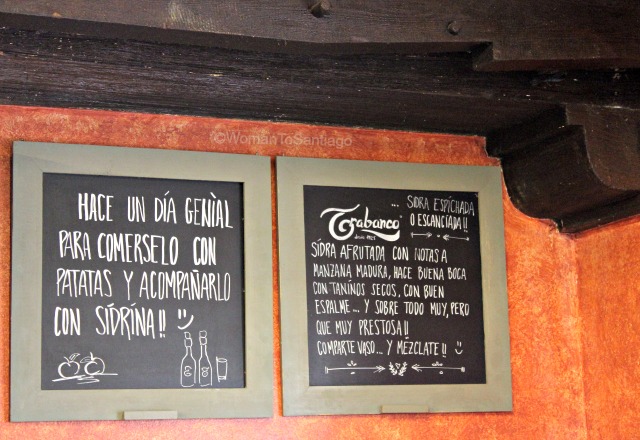 ©WomanToSantiago
HACE UN DÍA GENIAL
PARA COMERSELO CON
PATATAS Y ACOMPAÑARLO
CON SIDRINA!!
... SIDRA ESPICHADA
O ESCANCIADA!!
Trabanco
desde 1925
SIDRA AFRUTADA CON NOTAS A
MANZANA MADURA, HACE BUENA BOCA
CON TANINOS SECOS, CON BUEN
ESPALME... Y SOBRE TODO MUY, PERO
QUE MUY PRESTOSA!!
COMPARTE VASO... Y MEZCLATE!!